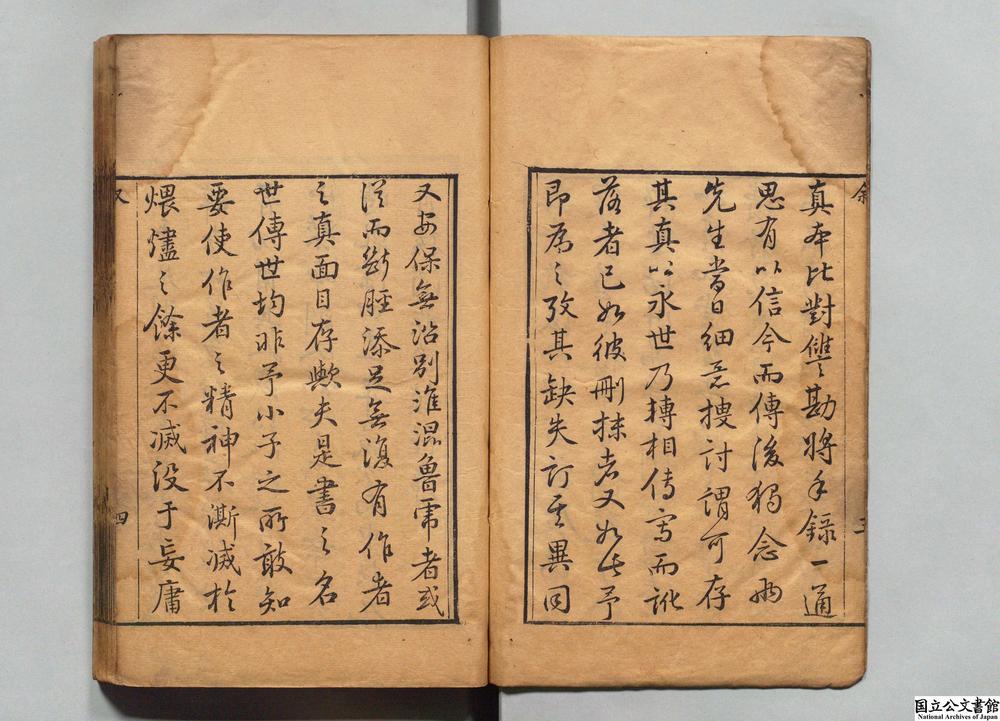 真本比對讐勘將手錄一通
思有以信今而傳後獨念兩
先生當日細意搜討謂可存
其真以永世乃轉相傳寫而訛
落者已如彼刪抹者又如此予
即為之攷其缺失訂其異同
又安保無沿別淮混魯帝者或
從而斷脛添足無復有作者
之真面目存歟夫是書之名
世傳世均非予小子之所敢知
要使作者之精神不澌滅於
煨燼之餘更不滅没于妄庸
叙
四
国立公文書館
National Archives of Japan